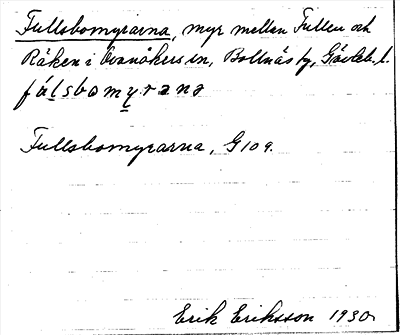 Fullsbomyrarna, myr mellan Fullen och
Råken i Ovanåkers sn, Bollnäs tg, Gävleb. l.
fúlsbomyrana
Fullsbomyrarna, G109.
Erik Eriksson 1930